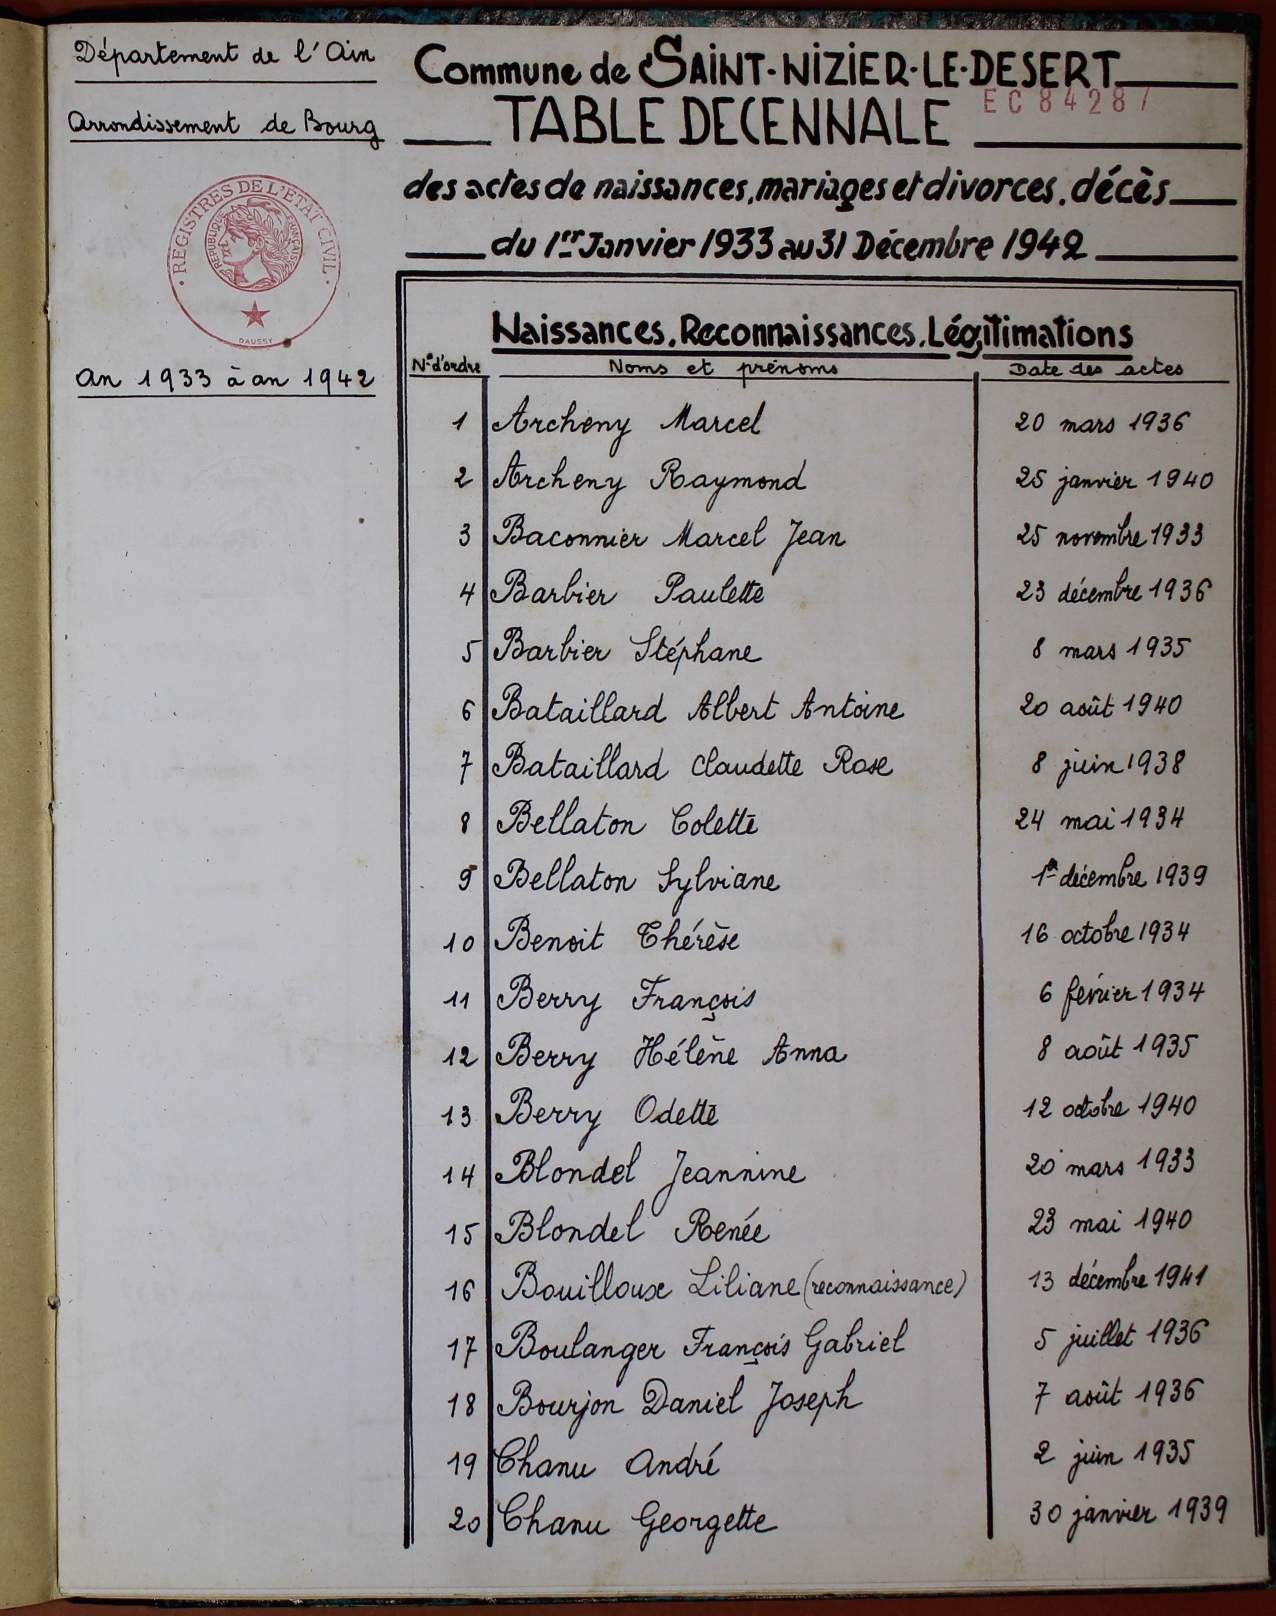 Département de l'Ain
Arrondissement de Bourg
REGISTRES DE L'ETAT CIVIL
REPUBLIQUE FRANÇAISE
DAUSSY
An 1933 à an 1942
Commune de SAINT-NIZIER-LE-DESERT
EC 84287
TABLE DECENNALE
des actes de naissances, mariages et divorces, décès
du 1er Janvier 1933 au 31 Décembre 1942
Naissances, Reconnaissances, Légitimations
N° d'ordre Noms et prénoms Date des actes
1 Archeny Marcel 20 mars 1936
2 Archeny Raymond 25 janvier 1940
3 Baconnier Marcel Jean 25 novembre 1933
4 Barbier Paulette 23 décembre 1936
5 Barbier Stéphane 8 mars 1935
6 Bataillard Albert Antoine 20 août 1940
7 Bataillard Claudette Rose 8 juin 1938
8 Bellaton Colette 24 mai 1934
9 Bellaton Sylviane 1er décembre 1939
10 Benoit Thérèse 16 octobre 1934
11 Berry François 6 février 1934
12 Berry Hélène Anna 8 août 1935
13 Berry Odette 12 octobre 1940
14 Blondel Jeannine 20 mars 1933
15 Blondel Renée 23 mai 1940
16 Bouilloux Liliane (reconnaissance) 13 décembre 1941
17 Boulanger François Gabriel 5 juillet 1936
18 Bourjon Daniel Joseph 7 août 1936
19 Chanu André 2 juin 1935
20 Chanu Georgette 30 janvier 1939